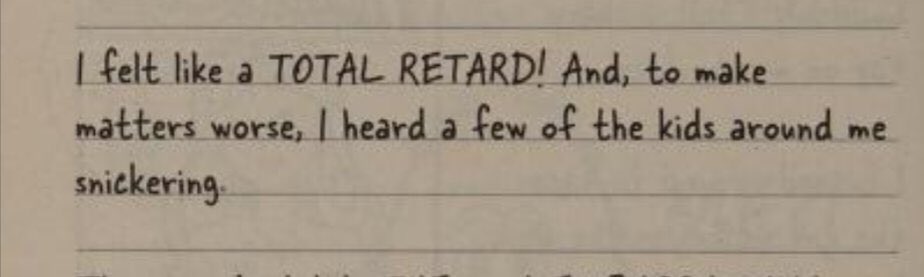 I felt like a TOTAL RETARD! And, to make
matters worse, I heard a few of the kids around me
snickering.